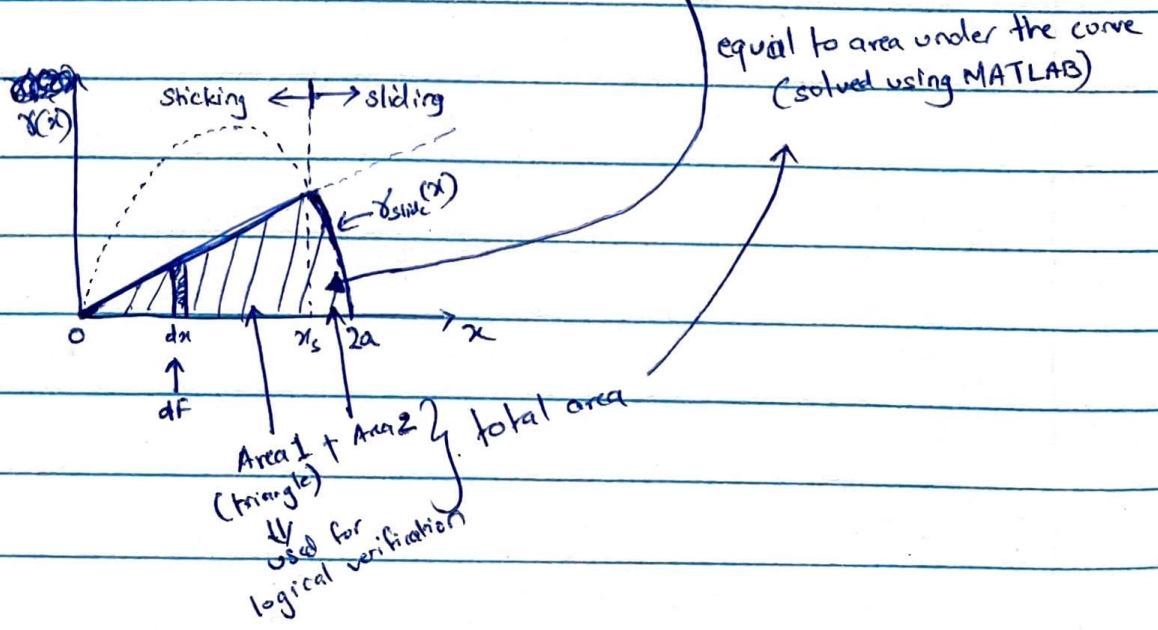 equal to area under the curve
(solved using MATLAB)
sticking ← → sliding
γ(x)
γslide(x)
0 dx xs 2a x
dF
Area 1 + Area 2 } total area
(triangle)
⇓
used for
logical verification